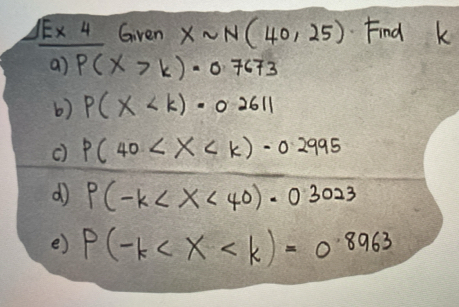 Ex 4 Given X ~ N(40, 25). Find k
a) P(X > k) = 0.7673
b) P(X < k) = 0.2611
c) P(40 < X < k) = 0.2995
d) P(-k < X < 40) = 0.3023
e) P(-k < X < k) = 0.8963